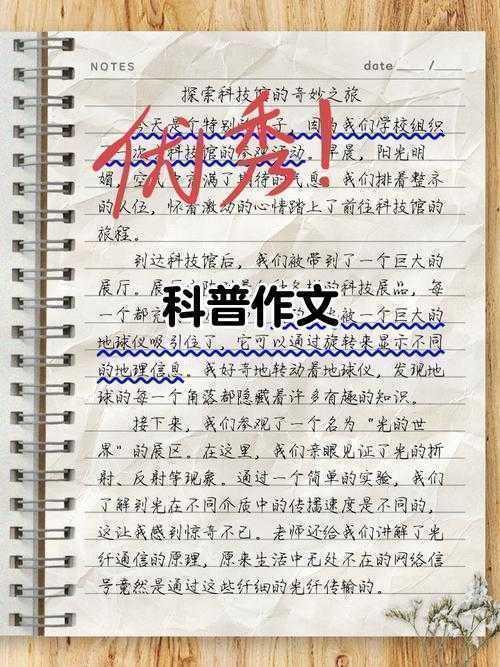 NOTES
date ___ / ___
探索科技馆的奇妙之旅
今天是个特别 子，因为我们学校组织
次 科技馆的参观活动。早晨，阳光明
媚，空气 充满了期待的气息。我们排着整齐
的队伍，怀着激动的心情踏上了前往科技馆的
旅程。
到达科技馆后，我们被带到了一个巨大的
展厅。展 的科技展品，每
一个都充 被一个巨大的
地球仪吸引住了，它可以通过旋转来显示不同
的地理信息。我好奇地转动着地球仪，发现地
球的每一个角落都隐藏着许多有趣的知识。
接下来，我们参观了一个名为“光的世
界”的展区。在这里，我们亲眼见证了光的折
射、反射等现象。通过一个简单的实验，我们
了解到光在不同介质中的传播速度是不同的，
这让我感到惊奇不已。老师还给我们讲解了光
纤通信的原理，原来生活中无处不在的网络信
号竟然是通过这些纤细的光纤传输的。
优秀！
科普作文